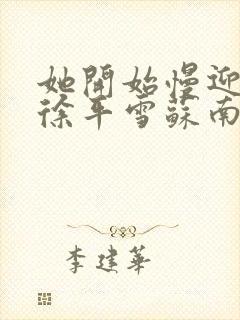 她開始慢迎
徐平雪蘇南
李建華